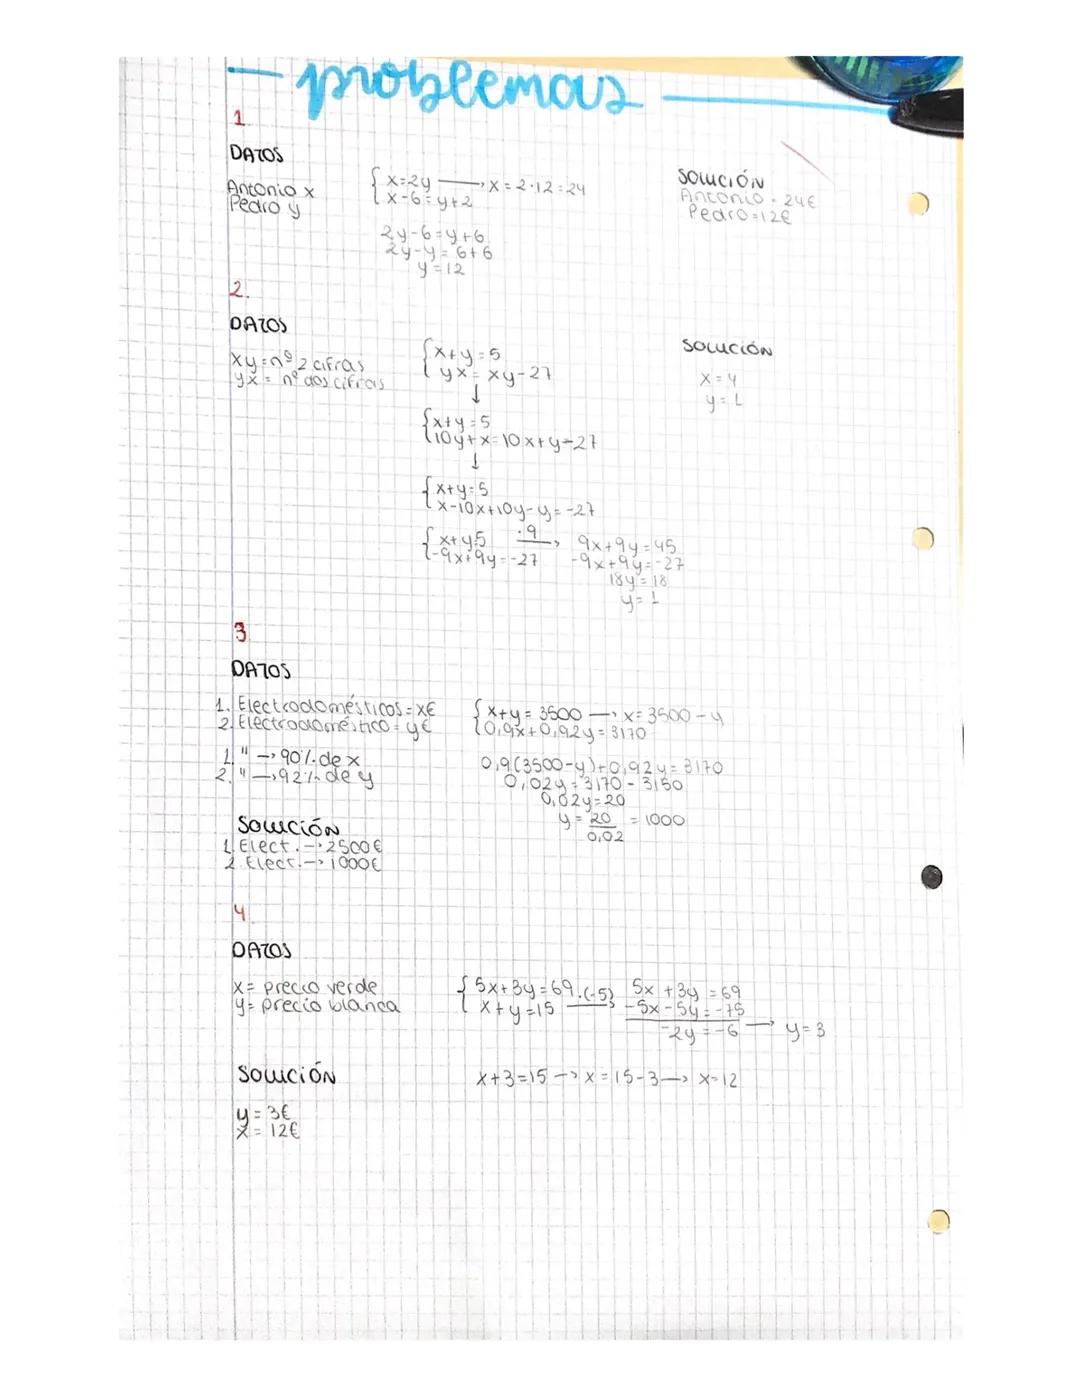 problemas
1.
DATOS
Antonio x
Pedro y
{ x=2y → x = 2·12 = 24
x-6 = y+2
2y-6=y+6
2y-y = 6+6
y=12
SOLUCIÓN
Antonio = 24€
Pedro=12€
2.
DATOS
xy = nº 2 cifras
yx = nº dos cifras
{ x+y=5
yx = xy-27
↓
{ x+y=5
10y+x=10x+y-27
↓
{ x+y=5
x-10x+10y-y=-27
{ x+y=5 ·9 →
-9x+9y=-27
9x+9y=45
-9x+9y=-27
18y=18
y=1
SOLUCIÓN
x=4
y=1
3.
DATOS
1. Electrodomésticos = x€
2. Electrodoméstico = y€
1. " → 90% de x
2. " → 92% de y
{ x+y= 3500 → x=3500-y
0,9x+0,92y=3170
0,9(3500-y)+0,92y=3170
0,02y=3170-3150
0,02y=20
y = 20/0,02 = 1000
SOLUCIÓN
1. Elect. → 2500€
2. Elect. → 1000€
4.
DATOS
x= precio verde
y= precio blanca
{ 5x+3y=69
x+y=15 ·(-5) →
5x+3y=69
-5x-5y=-75
-2y=-6 → y=3
x+3=15 → x=15-3 → x=12
SOLUCIÓN
y = 3€
x = 12€